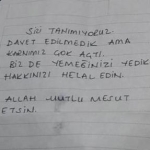 SİZİ TANIMIYORUZ.
DAVET EDİLMEDİK AMA
KARNIMIZ ÇOK AÇTI.
BİZ DE YEMEĞİNİZİ YEDİK
HAKKINIZI HELAL EDİN.
ALLAH MUTLU MESUT
ETSİN.